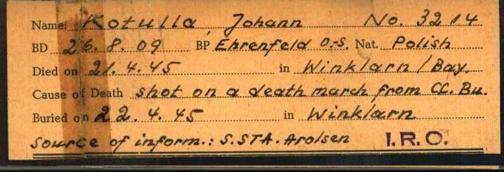 Name: Kotulla, Johann No. 3214
BD 26.8.09 BP Ehrenfeld O.-S. Nat. Polish
Died on 21.4.45 in Winklarn/Bay.
Cause of Death shot on a death march from CC. Bu.
Buried on 22.4.45 in Winklarn
Source of inform.: S.STA. Arolsen I.R.O.